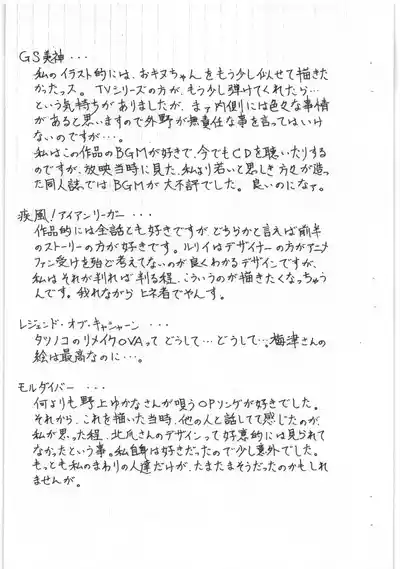 GS美神・・・
私のイラスト的には、おキヌちゃんをもう少し似せて描きた
かったっス。TVシリーズの方が、もう少し弾けてくれたら…
という気持ちがありましたが、まァ内側には色々な事情
があると思いますので外野が無責任な事を言ってはいけ
ないのですが…。
私はこの作品のBGMが好きで、今でもCDを聴いたりする
のですが、放映当時に見た、私より若いと思しき方々が造っ
た同人誌ではBGMが大不評でした。良いのになァ。
疾風!アイアンリーガー・・・
作品的には全話とも好きですが、どちらかと言えば前半
のストーリーの方が好きです。ルリイはデザイナーの方がアニメ
ファン受けを殆ど考えてないのが良くわかるデザインですが、
私はそれが判れば判る程、こういうのが描きたくなっちゃう
んです。我れながらヒネ者でやんす。
レジェンド・オブ・キャシャーン・・・
タツノコのリメイクOVAって どうして… どうして…。梅津さんの
絵は最高なのに…。
モルダイバー・・・
何よりも野上ゆかなさんが唄うOPソングが好きでした。
それから、これを描いた当時、他の人と話してて感じたのが、
私が思った程、北爪さんのデザインって好意的には見られて
なかったという事。私自身は好きだったので少し意外でした。
もっとも私のまわりの人達だけが、たまたまそうだったのかもしれ
ませんが。